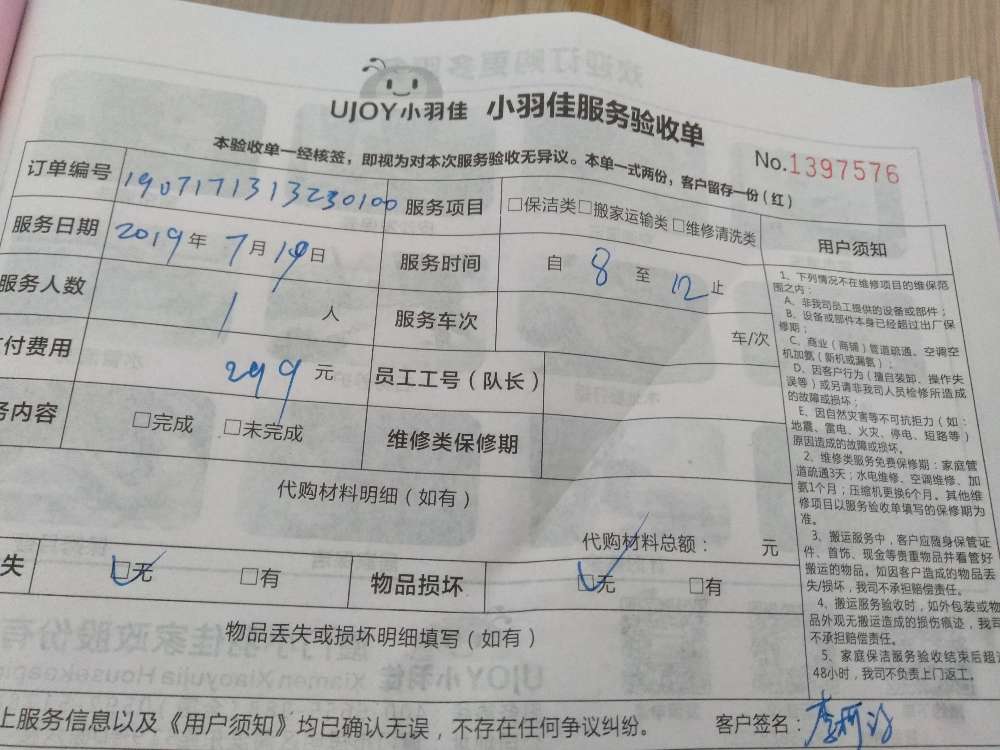 UJOY小羽佳 小羽佳服务验收单
本验收单一经核签，即视为对本次服务验收无异议。本单一式两份，客户留存一份（红）
No.1397576
订单编号 1907171313230100 服务项目 □保洁类 □搬家运输类 □维修清洗类
服务日期 2019年7月19日 服务时间 自 8 至 12 止
服务人数 1 人 服务车次 车/次
付费用 299 元 员工工号（队长）
务内容 □完成 □未完成 维修类保修期
代购材料明细（如有）
代购材料总额： 元
失 □无 □有 物品损坏 □无 □有
物品丢失或损坏明细填写（如有）
上服务信息以及《用户须知》均已确认无误，不存在任何争议纠纷。 客户签名：
用户须知
1、下列情况不在维修项目的维保范
围之内：
A、非我司员工提供的设备或部件；
B、设备或部件本身已经超过出厂保
修期；
C、商业（商铺）管道疏通、空调空
机加氨（新机或漏氨）；
D、因客户行为（擅自装卸、操作失
误等）或另请非我司人员检修所造成
的故障或损坏；
E、因自然灾害等不可抗拒力（如：
地震、雷电、火灾、停电、短路等）
原因造成的故障或损坏。
2、维修类服务免费保修期：家庭管
道疏通3天；水电维修、空调维修、加
氨1个月；压缩机更换6个月。其他维
修项目以服务验收单填写的保修期为
准。
3、搬运服务中，客户应随身保管证
件、首饰、现金等贵重物品并看管好
搬运的物品。如因客户造成的物品丢
失/损坏，我司不承担赔偿责任。
4、搬运服务验收时，如外包装或物
品外观无搬运造成的损伤痕迹，我司
不承担赔偿责任。
5、家庭保洁服务验收结束后超过
48小时，我司不负责上门返工。